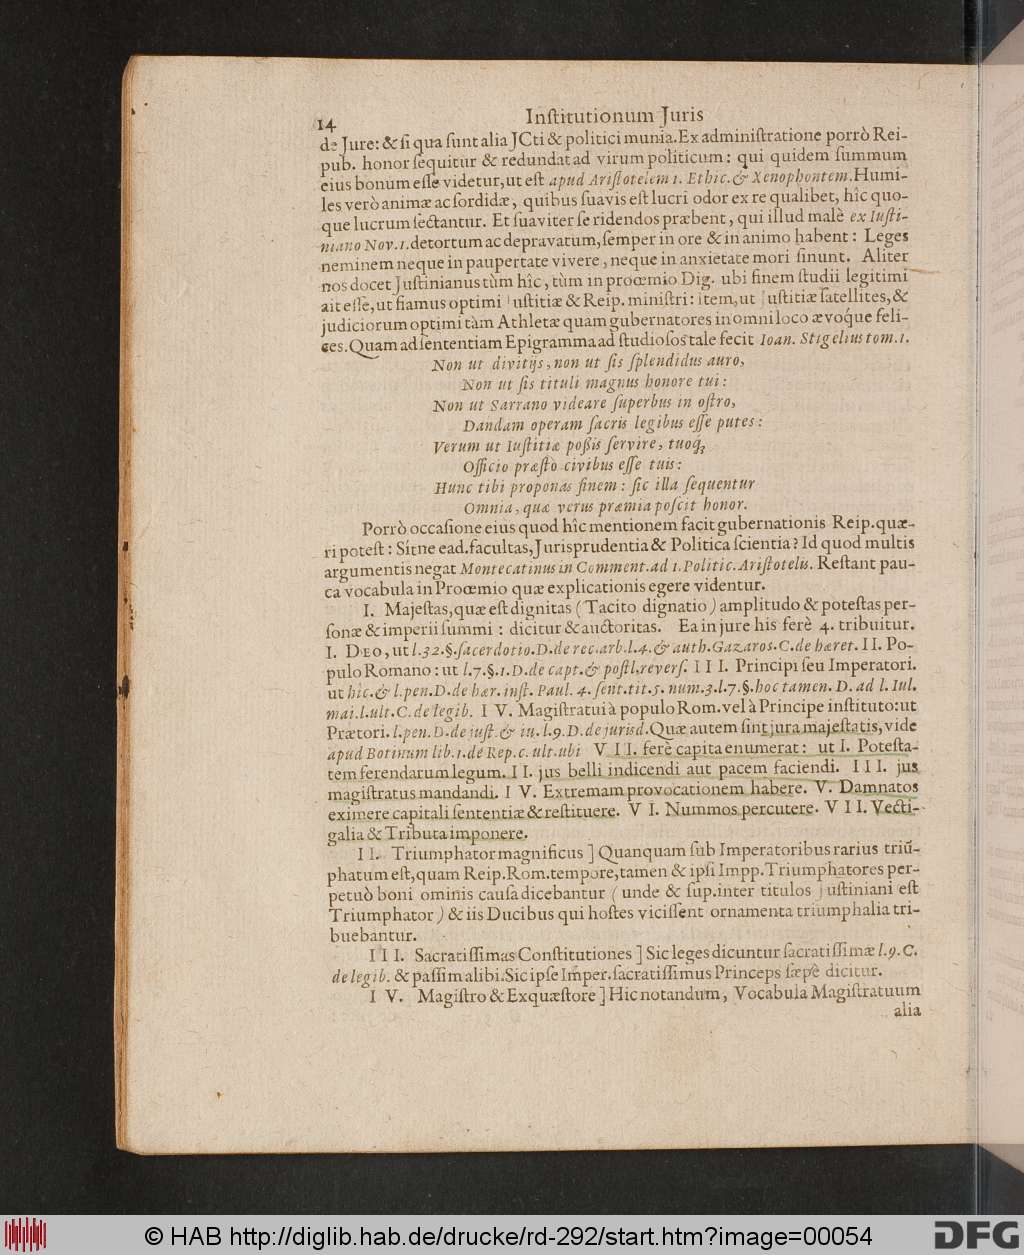 14 Inſtitutionum Juris
de Jure: & ſi qua ſunt alia JCti & politici munia. Ex adminiſtratione porrò Rei-
pub. honor ſequitur & redundat ad virum politicum: qui quidem ſummum
eius bonum eſſe videtur, ut eſt apud Ariſtotelem 1. Ethic. & Xenophontem. Humi-
les verò animæ ac ſordidæ, quibus ſuavis eſt lucri odor ex re qualibet, hîc quo-
que lucrum ſectantur. Et ſuaviter ſe ridendos præbent, qui illud malè ex Iuſti-
niano Nov. 1. detortum ac depravatum, ſemper in ore & in animo habent: Leges
neminem neque in paupertate vivere, neque in anxietate mori ſinunt. Aliter
nos docet Juſtinianus tùm hîc, tùm in prœmio Dig. ubi finem ſtudii legitimi
ait eſſe, ut fiamus optimi Juſtitiæ & Reip. miniſtri: item, ut Juſtitiæ ſatellites, &
judiciorum optimi tàm Athletæ quam gubernatores in omni loco ævoq́ue feli-
ces. Quam ad ſententiam Epigramma ad ſtudioſos tale fecit Ioan. Stigelius tom. 1.
Non ut divitijs, non ut ſis ſplendidus auro,
Non ut ſis tituli magnus honore tui:
Non ut Sarrano videare ſuperbus in oſtro,
Dandam operam ſacris legibus eſſe putes:
Verum ut Iuſtitiæ poßis ſervire, tuoq́;
Officio præſto civibus eſſe tuis:
Hunc tibi proponas finem: ſic illa ſequentur
Omnia, quæ verus præmia poſcit honor.
Porrò occaſione eius quod hîc mentionem facit gubernationis Reip. quæ-
ri poteſt: Sítne ead. facultas, Jurisprudentia & Politica ſcientia? Id quod multis
argumentis negat Montecatinus in Comment. ad 1. Politic. Ariſtotelis. Reſtant pau-
ca vocabula in Prœmio quæ explicationis egere videntur.
I. Majeſtas, quæ eſt dignitas (Tacito dignatio) amplitudo & poteſtas per-
ſonæ & imperii ſummi: dicitur & auctoritas. Ea in jure his ferè 4. tribuitur.
I. DEO, ut l. 32. §. ſacerdotio. D. de rec. arb. l. 4. & auth. Gazaros. C. de hæret. II. Po-
pulo Romano: ut l. 7. §. 1. D. de capt. & poſtl. reverſ. III. Principi ſeu Imperatori.
ut hîc. & l. pen. D. de hær. inſt. Paul. 4. ſent. tit. 5. num. 3. l. 7. §. hoc tamen. D. ad l. Iul.
mai. l. ult. C. de legib. IV. Magiſtratui à populo Rom. vel à Principe inſtituto: ut
Prætori. l. pen. D. de juſt. & iu. l. 9. D. de jurisd. Quæ autem ſint jura majeſtatis, vide
apud Botinum lib. 1. de Rep. c. ult. ubi VII. ferè capita enumerat: ut I. Poteſta-
tem ferendarum legum. II. jus belli indicendi aut pacem faciendi. III. jus
magiſtratus mandandi. IV. Extremam provocationem habere. V. Damnatos
eximere capitali ſententiæ & reſtituere. VI. Nummos percutere. VII. Vecti-
galia & Tributa imponere.
II. Triumphator magnificus] Quanquam ſub Imperatoribus rarius triū-
phatum eſt, quam Reip. Rom. tempore, tamen & ipſi Impp. Triumphatores per-
petuò boni ominis cauſa dicebantur (unde & ſup. inter titulos Juſtiniani eſt
Triumphator) & iis Ducibus qui hoſtes viciſſent ornamenta triumphalia tri-
buebantur.
III. Sacratiſſimas Conſtitutiones] Sic leges dicuntur ſacratiſſimæ l. 9. C.
de legib. & paſſim alibi. Sic ipſe Imper. ſacratiſſimus Princeps ſæpè dicitur.
IV. Magiſtro & Exquæſtore] Hic notandum, Vocabula Magiſtratuum
alia
© HAB http://diglib.hab.de/drucke/rd-292/start.htm?image=00054
DFG